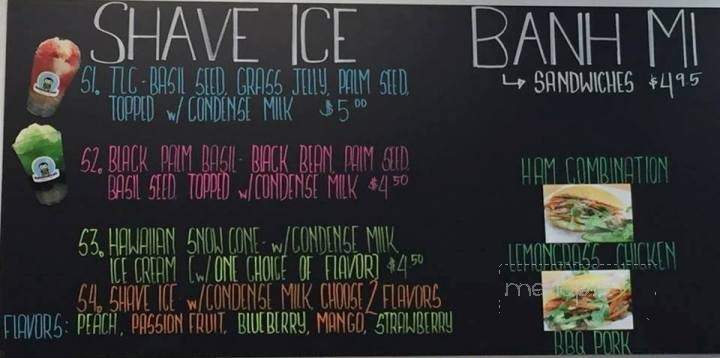 SHAVE ICE
S1. TLC - BASIL SEED, GRASS JELLY, PALM SEED,
TOPPED w/ CONDENSE MILK $5.00
S2. BLACK PALM BASIL - BLACK BEAN, PALM SEED
BASIL SEED, TOPPED w/ CONDENSE MILK $4.50
S3. HAWAIIAN SNOW CONE - w/ CONDENSE MILK
ICE CREAM [w/ ONE CHOICE OF FLAVOR] $4.50
S4. SHAVE ICE w/ CONDENSE MILK CHOOSE 2 FLAVORS
FLAVORS: PEACH, PASSION FRUIT, BLUEBERRY, MANGO, STRAWBERRY
BANH MI
↳ SANDWICHES $4.95
HAM COMBINATION
LEMONGRASS CHICKEN
BBQ PORK